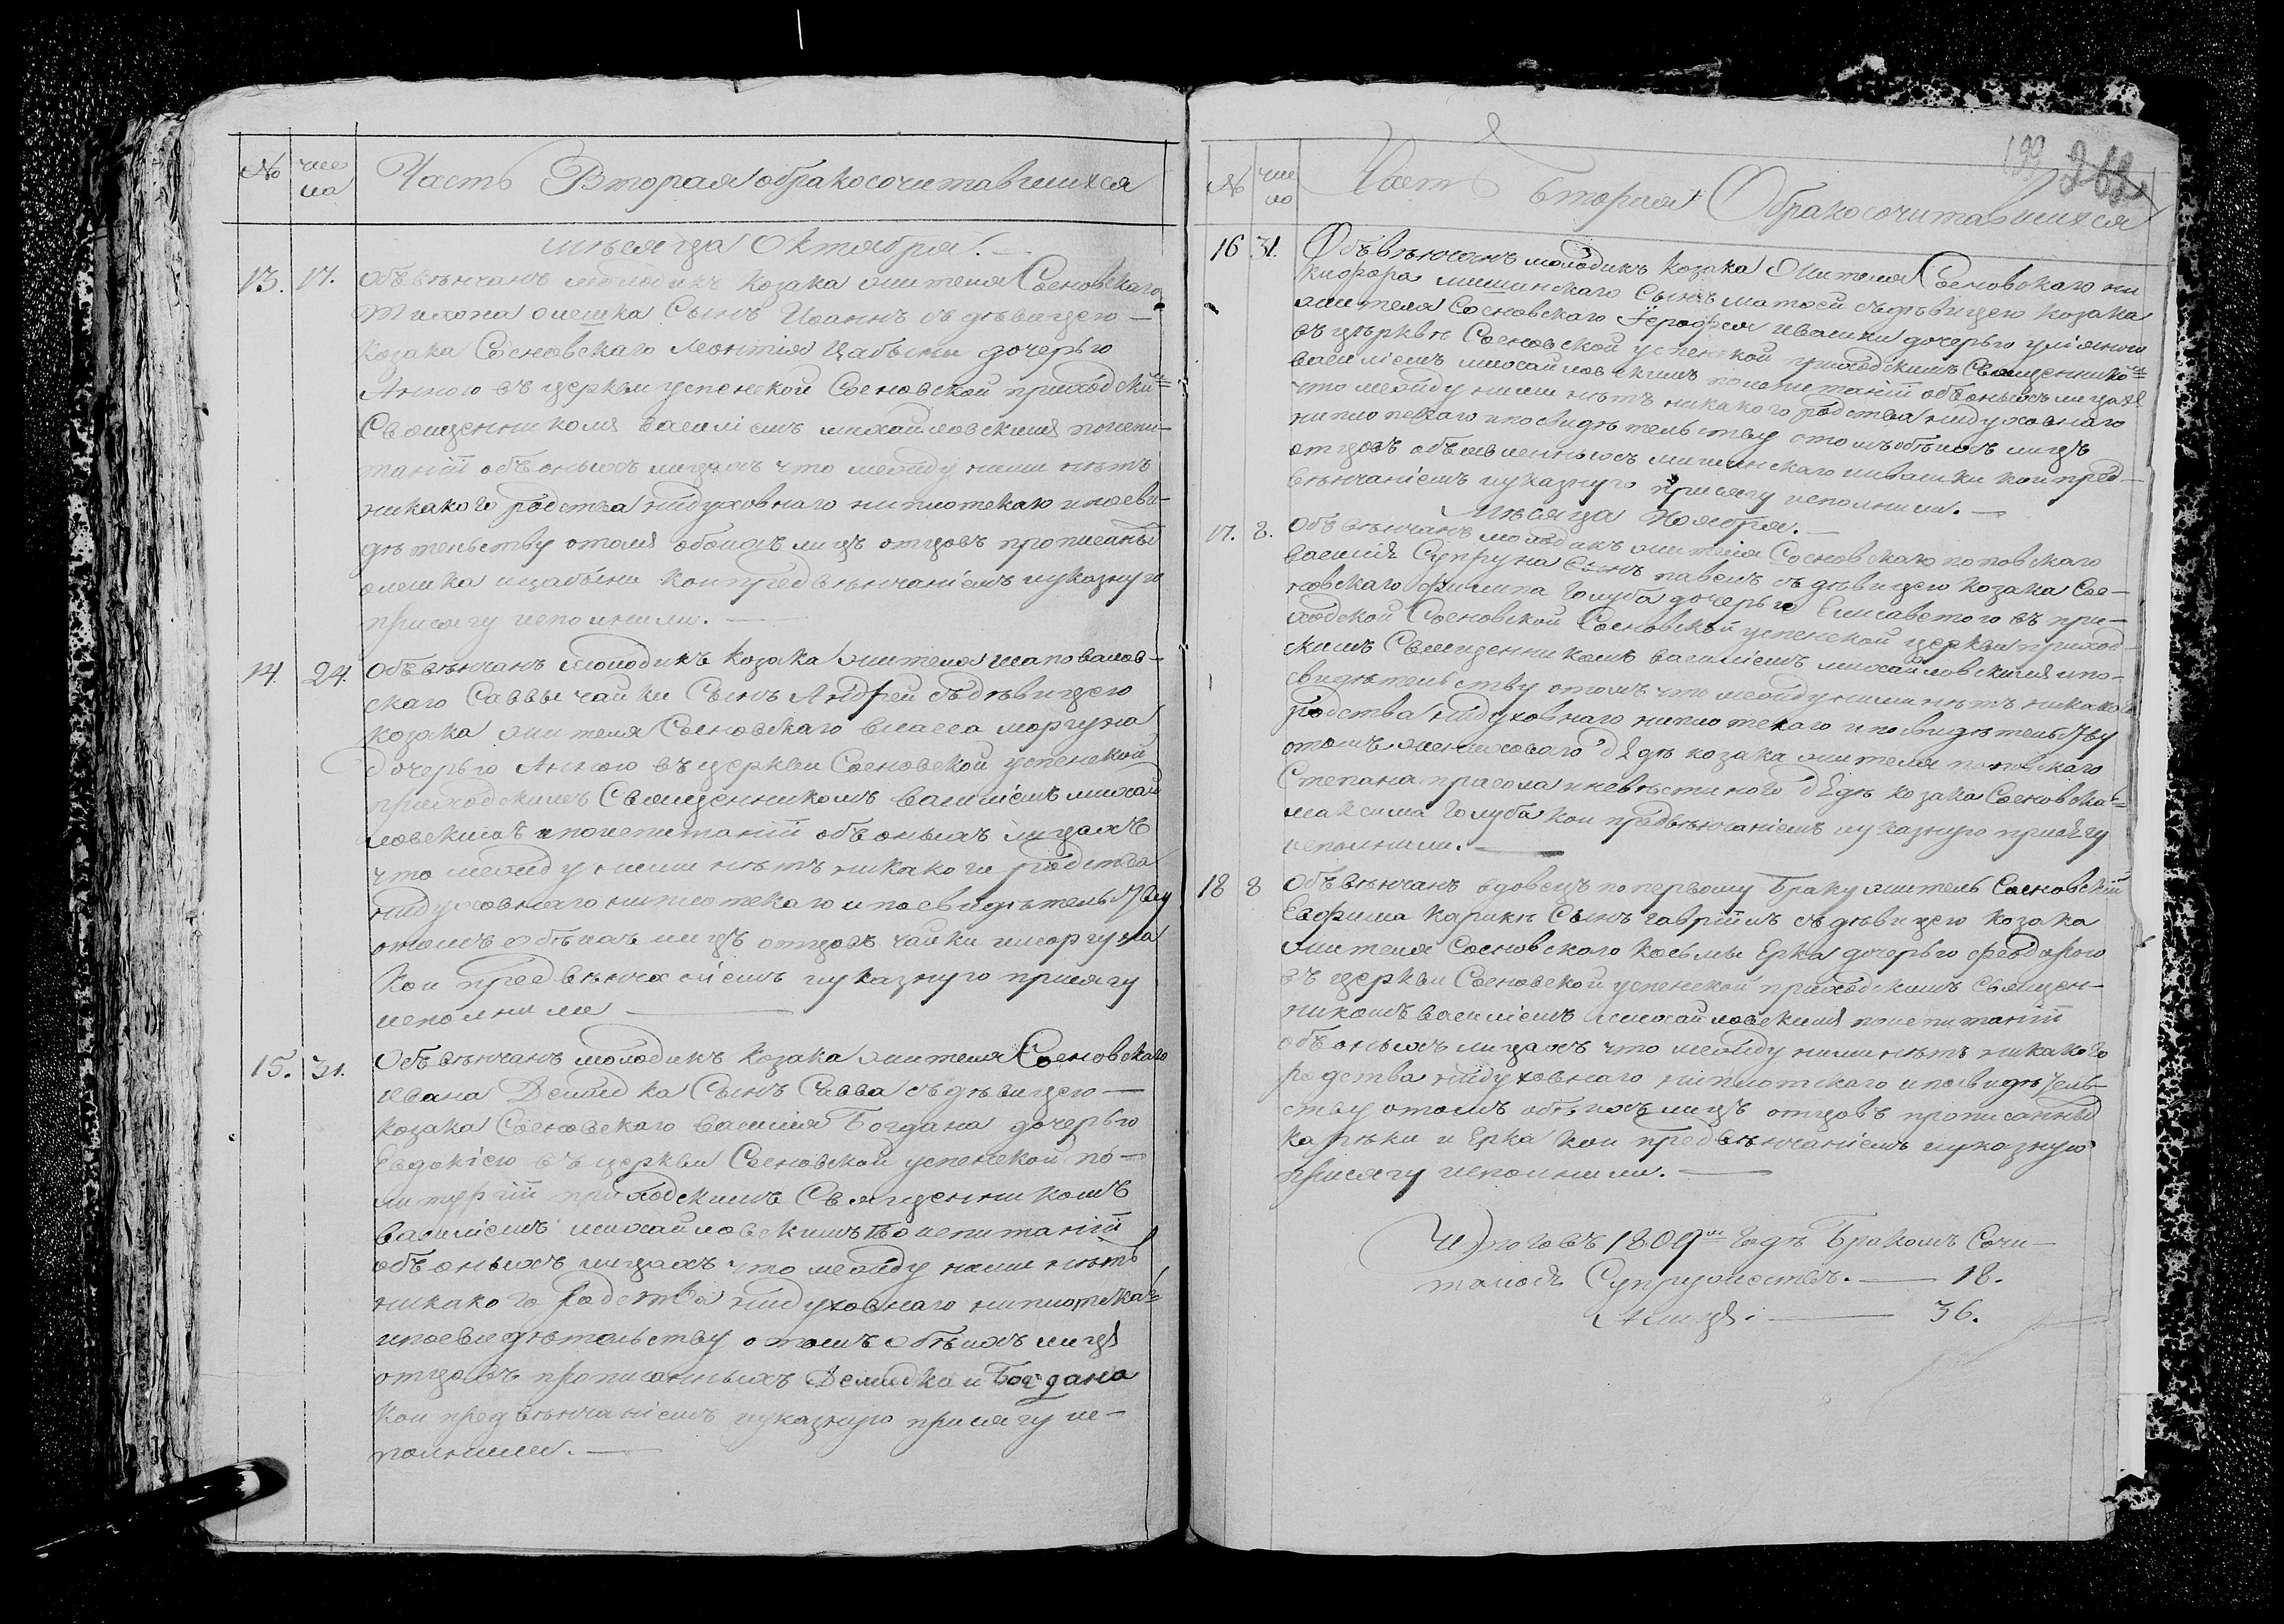 № чис
ла
Часть Вторая обракосочитавшихся
мѣсяца Октября.
13. 17. Обвѣнчанъ молодикъ козака жителя Сосновскаго
Тихона олешка Сынъ Иоаннъ съ дѣвицею —
козака Сосновскаго Леонтія Цабыни дочерью
Анною въ церкви успенской Сосновской приходски=
Священникомъ василіемъ михайловскимъ поиспи-
таніи объ оныхъ лицахъ что между ними нѣтъ
никакого родства нидуховнаго ниплотскаго ипосви-
дѣтельству отомъ обоихъ лицъ отцовъ прописаны
олешка ицабыни кои предвѣнчаніемъ иуказную
присягу исполнили. —
14. 24. Обвѣнчанъ молодикъ козака жителя шаповалов-
скаго Саввы чайки Сынъ Андрей съ дѣвицею
козака жителя Сосновскаго власа моргуна
дочерью Анною въ церкви Сосновской успенской
приходскимъ Священникомъ василіемъ михай
ловскимъ ипоиспитаніи объ оныхъ лицахъ
что между ними нѣтъ никакого родства
нидуховнаго ниплотскаго ипосвидѣтельству
отомъ обѣихъ лицъ отцовъ чайки иморгуна
Кои предвѣнчаніемъ иуказную присягу
исполнили —
15. 31. Обвѣнчанъ молодикъ козака жителя Сосновскаго
ивана Демидка Сынъ Савва съ дѣвицею —
козака Сосновскаго василія Богдана дочерью
Евдокіею въ церкви Сосновской успенской по-
литургіи приходскимъ Священникомъ
василіемъ михайловскимъ Поиспитаніи
объ оныхъ лицахъ что между ними нѣтъ
никакого родства нидуховнаго ниплотска=
ипосвидѣтельству отомъ обѣихъ лицъ
отцовъ прописанныхъ Демидка и Богдана
кои предвѣнчаніемъ иуказную присягу ис-
полнили. —
№ чис
ло
Часть вторая Обракосочитавшихся
16 31. Обвѣнчанъ молодикъ козака Жителя Сосновскаго ни
кифора мишинскаго Сынъ матвей съ дѣвицею козака
жителя Сосновскаго Іерофея ивашки дочерью уліяною
въ церквѣ Сосновской успенской приходскимъ Священнико=
василіемъ михайловскимъ поиспитаніи объ оныхъ лицахъ
что между ними нѣтъ никакого родства нидуховнаго
ниплотскаго ипосвидѣтельству отомъ обѣихъ лицъ
отцовъ объявленныхъ мишинскаго иивашки кои пред-
вѣнчаніемъ иуказную присягу исполнили. —
Мѣсяца Ноября. —
17. 8. Обвѣнчанъ молодикъ жителя Сосновскаго поповскаго
василія Супруна Сынъ павелъ съ дѣвицею козака Сос-
новскаго филипа Голуба дочерью Елисаветою въ при-
ходской Сосновской Сосновской успенской церкви приход-
скимъ Священникомъ василіемъ михайловскимъ ипо-
свидѣтельству отомъ что между ними нѣтъ никако
родства нидуховнаго ниплотскаго ипосвидѣтельству
отомъ жениховаго дядѣ козака жителя поповскаго
Степана прасола иневѣстиного дядѣ козака Сосновска=
максима Голуба кои предвѣнчаніемъ иуказную присягу
исполнили. —
18 8 Обвѣнчанъ вдовецъ поперьвому Браку житель Сосновскій
Евфима Карики Сынъ гавріилъ съ дѣвицею козака
жителя Сосновского Косьмы Ерка дочерью феодорою
въ церкви Сосновской успенской приходскимъ Священ-
никомъ василіемъ михайловскимъ поиспитаніи
объ оныхъ лицахъ что между ними нѣтъ никакого
родства нидуховнаго ниплотскаго ипосвидѣтель-
ству отомъ обѣихъ лицъ отцовъ прописанны
Карѣки и Ерка кои предвѣнчаніемъ иуказную
присягу исполнили. —
Итого въ 1809м Годѣ Бракомъ Сочи-
талось Супружествъ. — 18.
А лицъ: — 36.